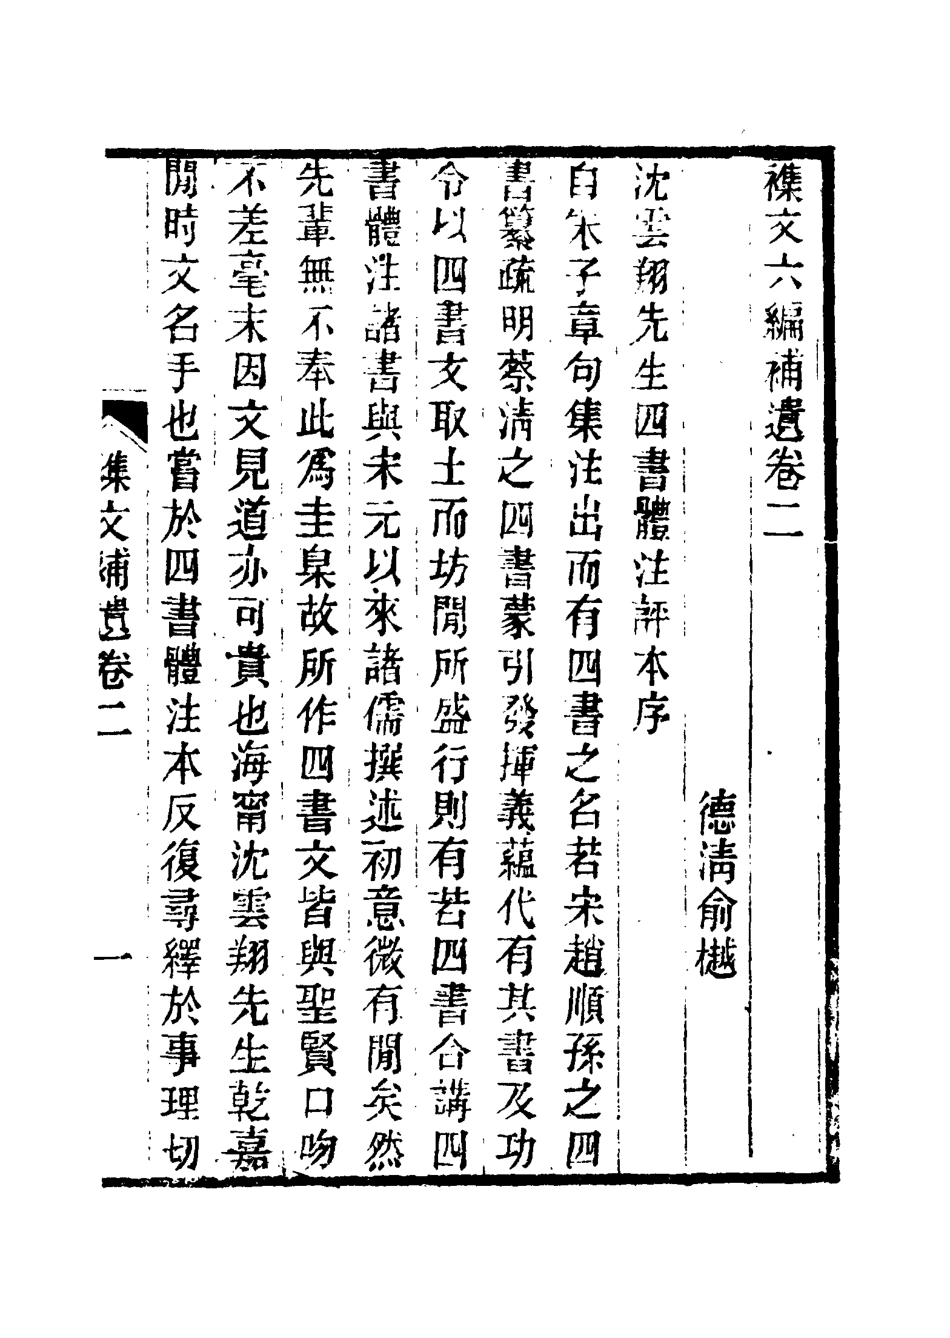 襍文六編補遺卷二
德淸俞樾
沈雲翔先生四書體注評本序
自朱子章句集注出而有四書之名若宋趙順孫之四
書纂疏明蔡淸之四書蒙引發揮義蘊代有其書及功
令以四書文取士而坊閒所盛行則有若四書合講四
書體注諸書與宋元以來諸儒撰述初意微有閒矣然
先輩無不奉此爲圭臬故所作四書文皆與聖賢口吻
不差毫末因文見道亦可貴也海甯沈雲翔先生乾嘉
閒時文名手也嘗於四書體注本反復尋繹於事理切
集文補遺卷二
一